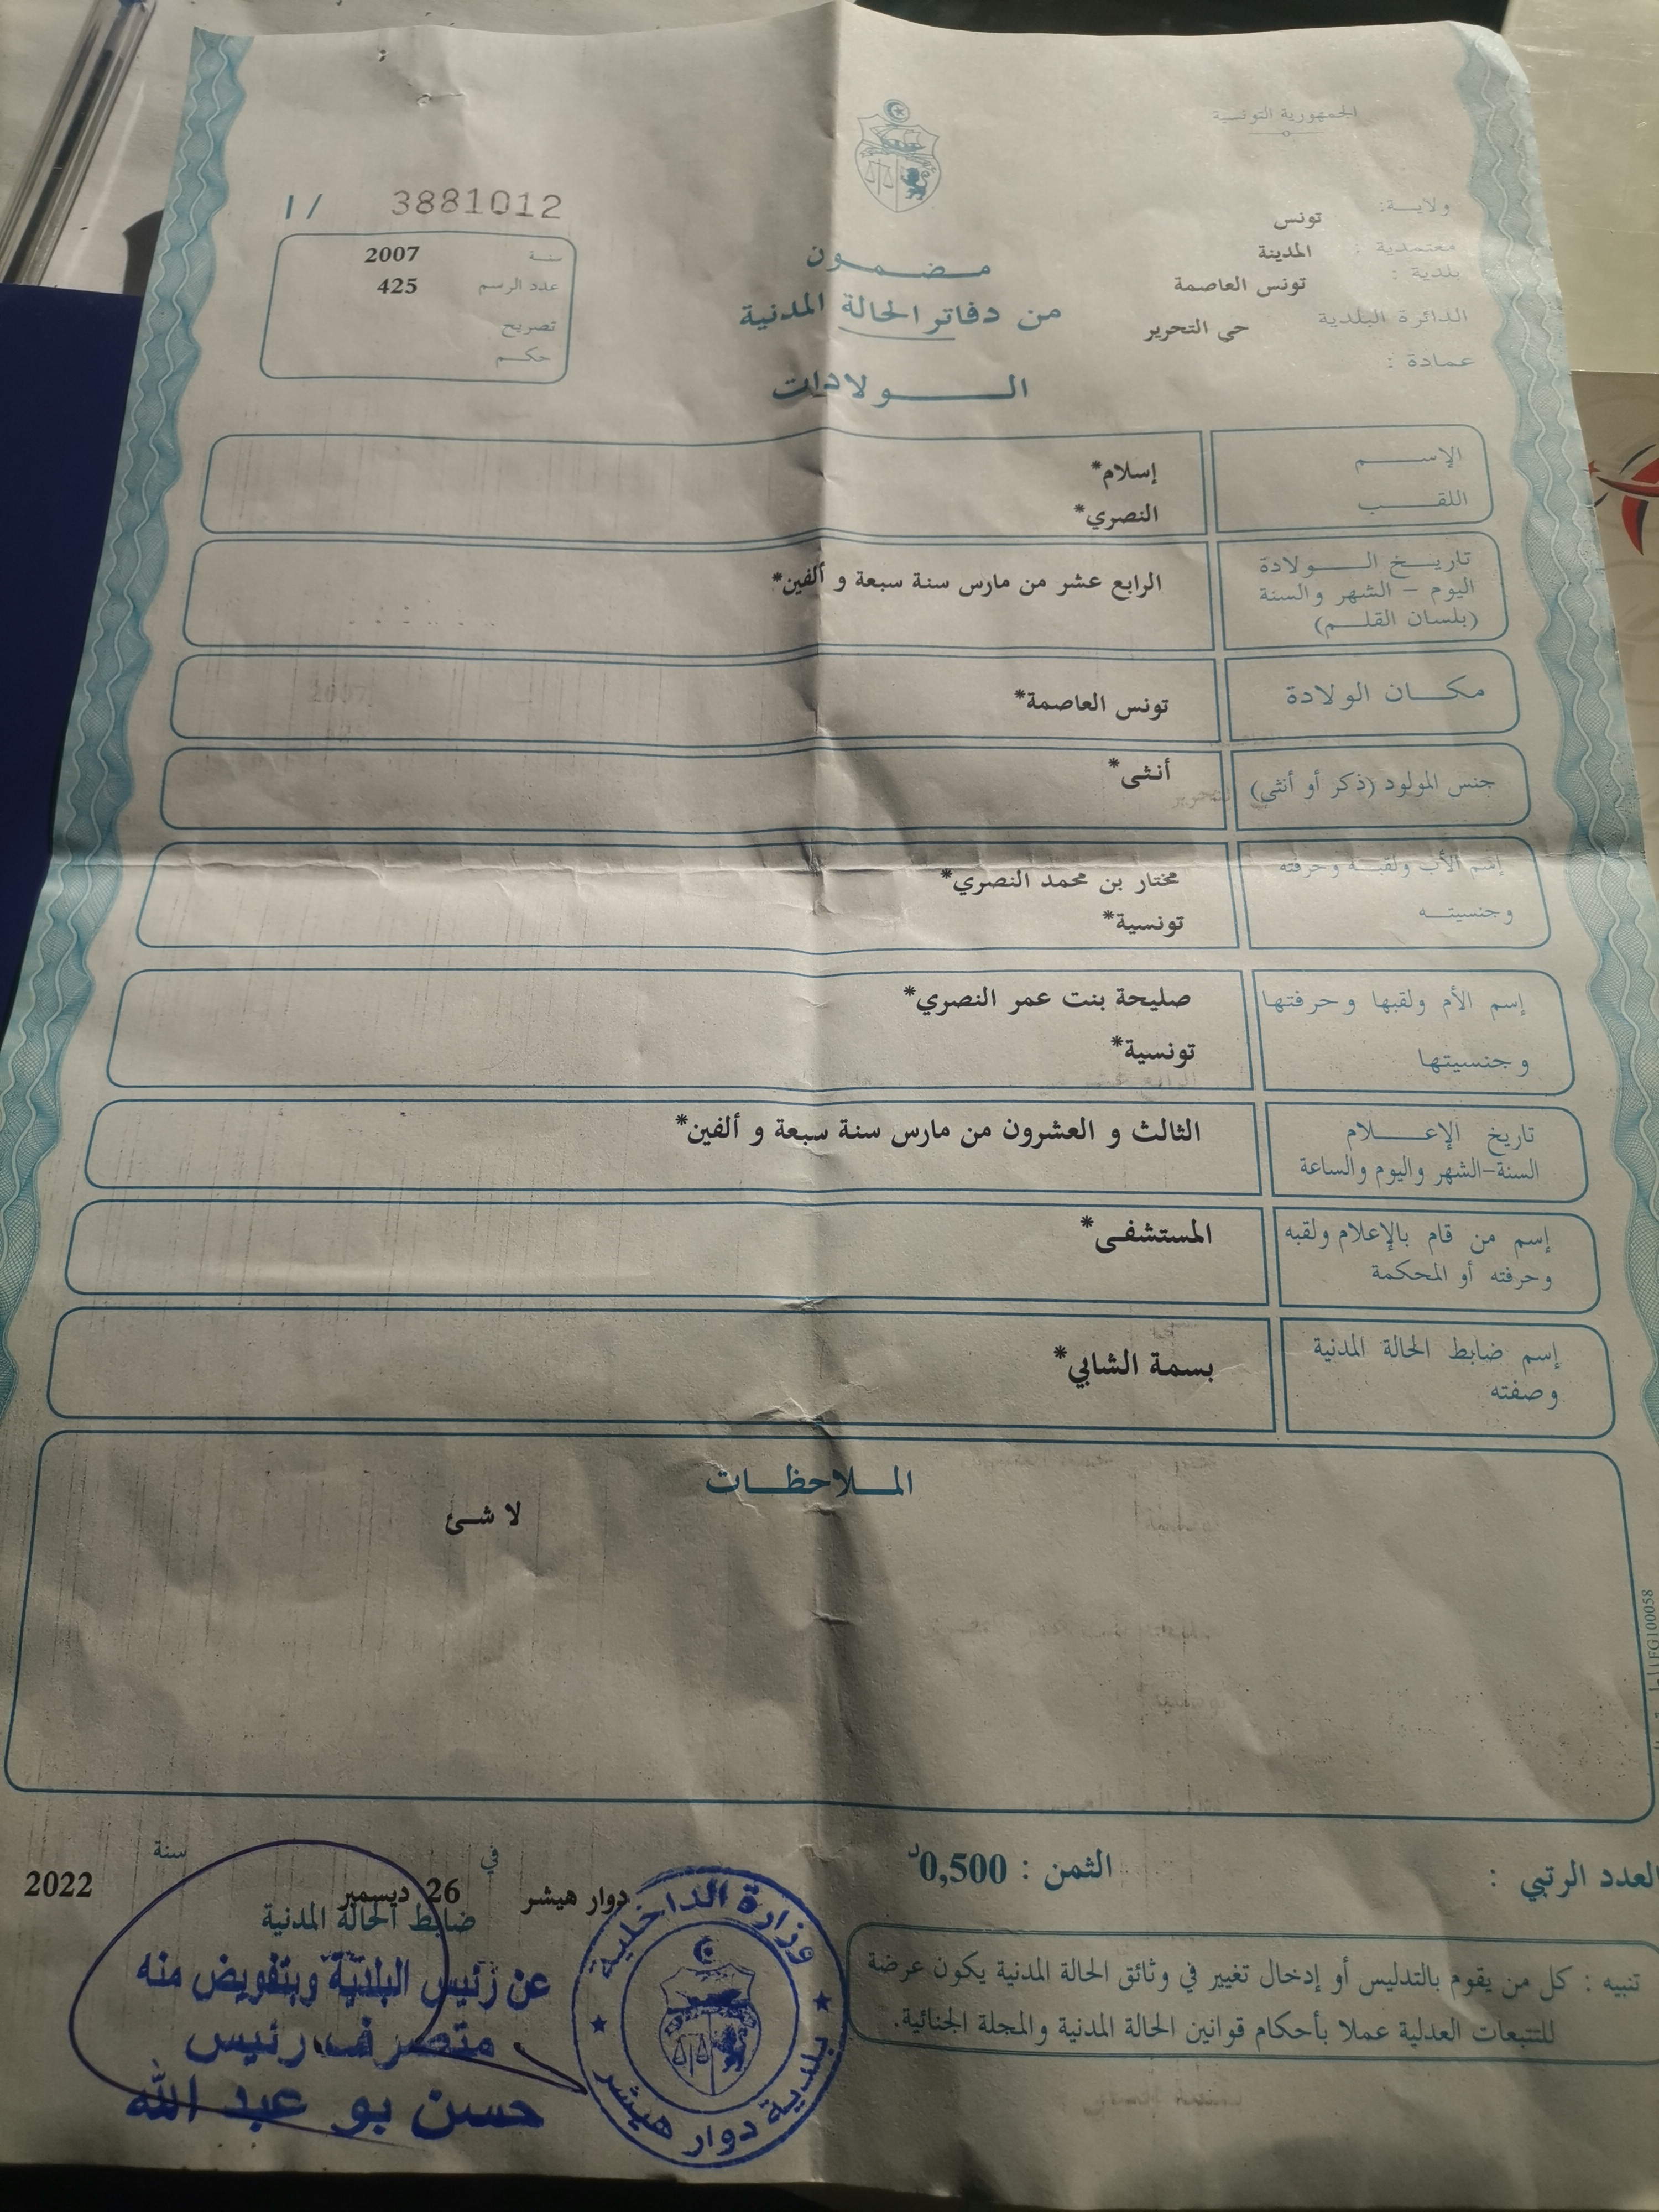 الجمهورية التونسية
ولاية: تونس
معتمدية : المدينة
بلدية : تونس العاصمة
الدائرة البلدية حي التحرير
عمادة :
مضمون
من دفاتر الحالة المدنية
الولادات
3881012 / 1
سنة 2007
عدد الرسم 425
تصريح
حكم
الإسم إسلام*
اللقب النصري*
تاريخ الولادة
اليوم - الشهر والسنة
(بلسان القلم)
الرابع عشر من مارس سنة سبعة و ألفين*
مكان الولادة تونس العاصمة*
جنس المولود (ذكر أو أنثى) أنثى*
إسم الأب ولقبه وحرفته مختار بن محمد النصري*
وجنسيته تونسية*
إسم الأم ولقبها وحرفتها صليحة بنت عمر النصري*
وجنسيتها تونسية*
تاريخ الإعلام الثالث و العشرون من مارس سنة سبعة و ألفين*
السنة-الشهر واليوم والساعة
إسم من قام بالإعلام ولقبه المستشفى*
وحرفته أو المحكمة
إسم ضابط الحالة المدنية بسمة الشابي*
وصفته
الملاحظات
لا شئ
العدد الرتبي :
الثمن : 0,500د
تنبيه : كل من يقوم بالتدليس أو إدخال تغيير في وثائق الحالة المدنية يكون عرضة
للتتبعات العدلية عملا بأحكام قوانين الحالة المدنية والمجلة الجنائية.
دوار هيشر في 26 ديسمبر سنة 2022
ضابط الحالة المدنية
عن رئيس البلدية وبتفويض منه
متصرف رئيس
حسن بو عبد الله
وزارة الداخلية
بلدية دوار هيشر